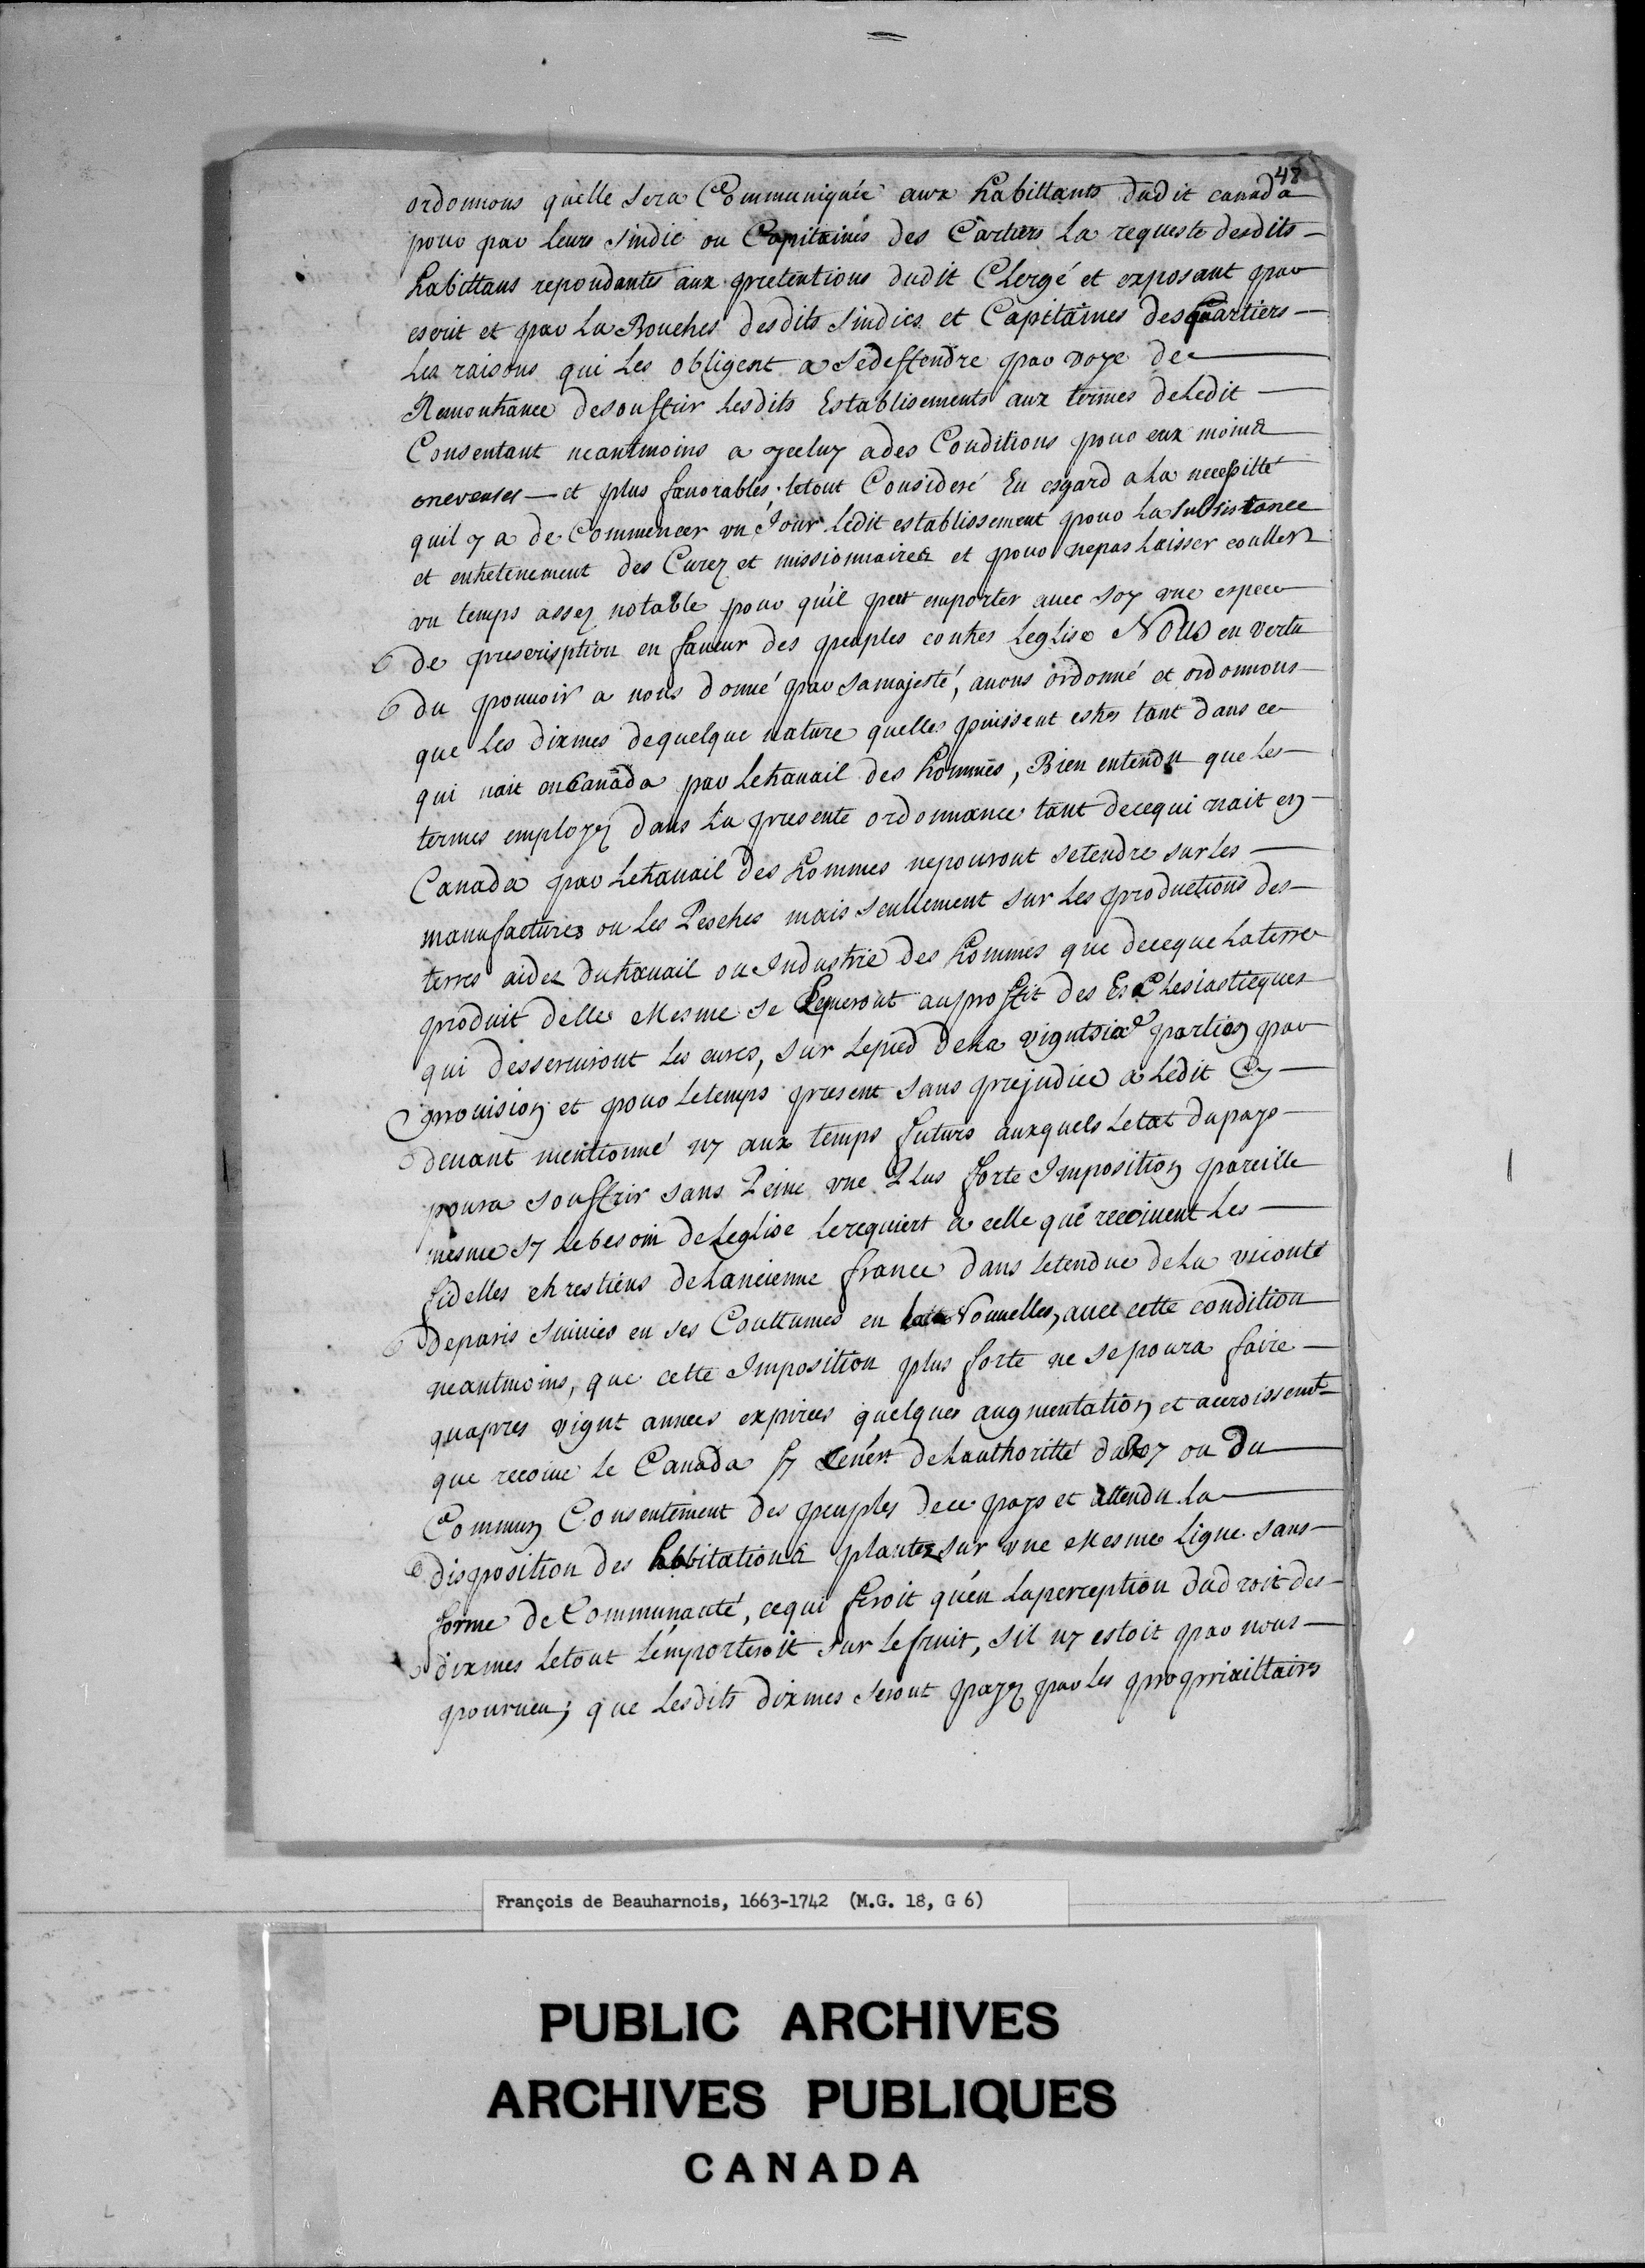 48
ordonnons quelle sera Communiquée aux habittants dudit canada
pour par leurs sindic ou Capitaines des Cartiers La requeste desdits
habittans repondante aux pretentions dudit Clergé et exposant par
escrit et par La Bouches desdits sindics et Capitaines des quartiers
Les raisons qui Les obligent a sedeffendre par voye de
Remontrance desouffrir Lesdits Establisements aux termes deLedit
Consentant neantmoins a yceluy ades Conditions pour eux moins
onereuses et plus fauorables. letout Consideré Eu esgard aLa necessitté
quil y a de Commencer un Jour ledit establissement pour La subsistance
et entretenement des Curez et missionnaires et pour nepas Laisser couller
vn temps assez notable pour qu'il peut emporter auec soy vne espece
de prescrisption en faueur des peuples contres Leglise Nous en vertu
du pouuoir a nous donné par samajesté, auons ordonné et ordonnons
que Les dixmes dequelque nature quelles puissent estres tant dans ce
qui nait en Canada par Letrauail des hommes, Bien entendu que Les
termes employez dans La presente ordonnance tant decequi nait en
Canada par Letrauail des hommes nepouront setendre sur Les
manufactures ou Les Pesches mais seullement sur Les productions des
terres aidez dutrauail ou Industrie des hommes que deceque Laterre
produit delle mesme se Leueront auproffit des Ecclesiasticques
qui desseruiront Les cures, sur Lepied deLa vigntsixe partien par
prouision et pour Letemps present sans prejudice a Ledit Cy
deuant mentionné ny aux temps futurs auxquels Letat dupays
poura souffrir sans Peine vne Plus forte Imposition pareille
mesme sy Lebesoin deLeglise Lerequiert a celle que recoiuent Les
fidelles chrestiens deLancienne france dans Letendue deLa viconté
deparis suiuies en ses Couttumes en la Nouuelles, auec cette condition
neantmoins, que cette Imposition plus forte ne sepoura faire
quapres vignt annees expirees quelques augmentation et accroissemt
que recoiue Le Canada sy ce n'est deLauthoritté duRoy ou du
Commun Consentement des peuples dece pays et attendu La
disposition des habitations plantez sur vne mesme Ligne sans
forme deCommunauté, cequi feroit qu'en Laperception dudroit des
dixmes Letout L'emporteroit sur Lefruit, sil ny estoit par nous
pourueu; que Lesdits dixmes seront payez par Les proprixittairs
François de Beauharnois, 1663-1742 (M.G. 18, G 6)
PUBLIC ARCHIVES
ARCHIVES PUBLIQUES
CANADA